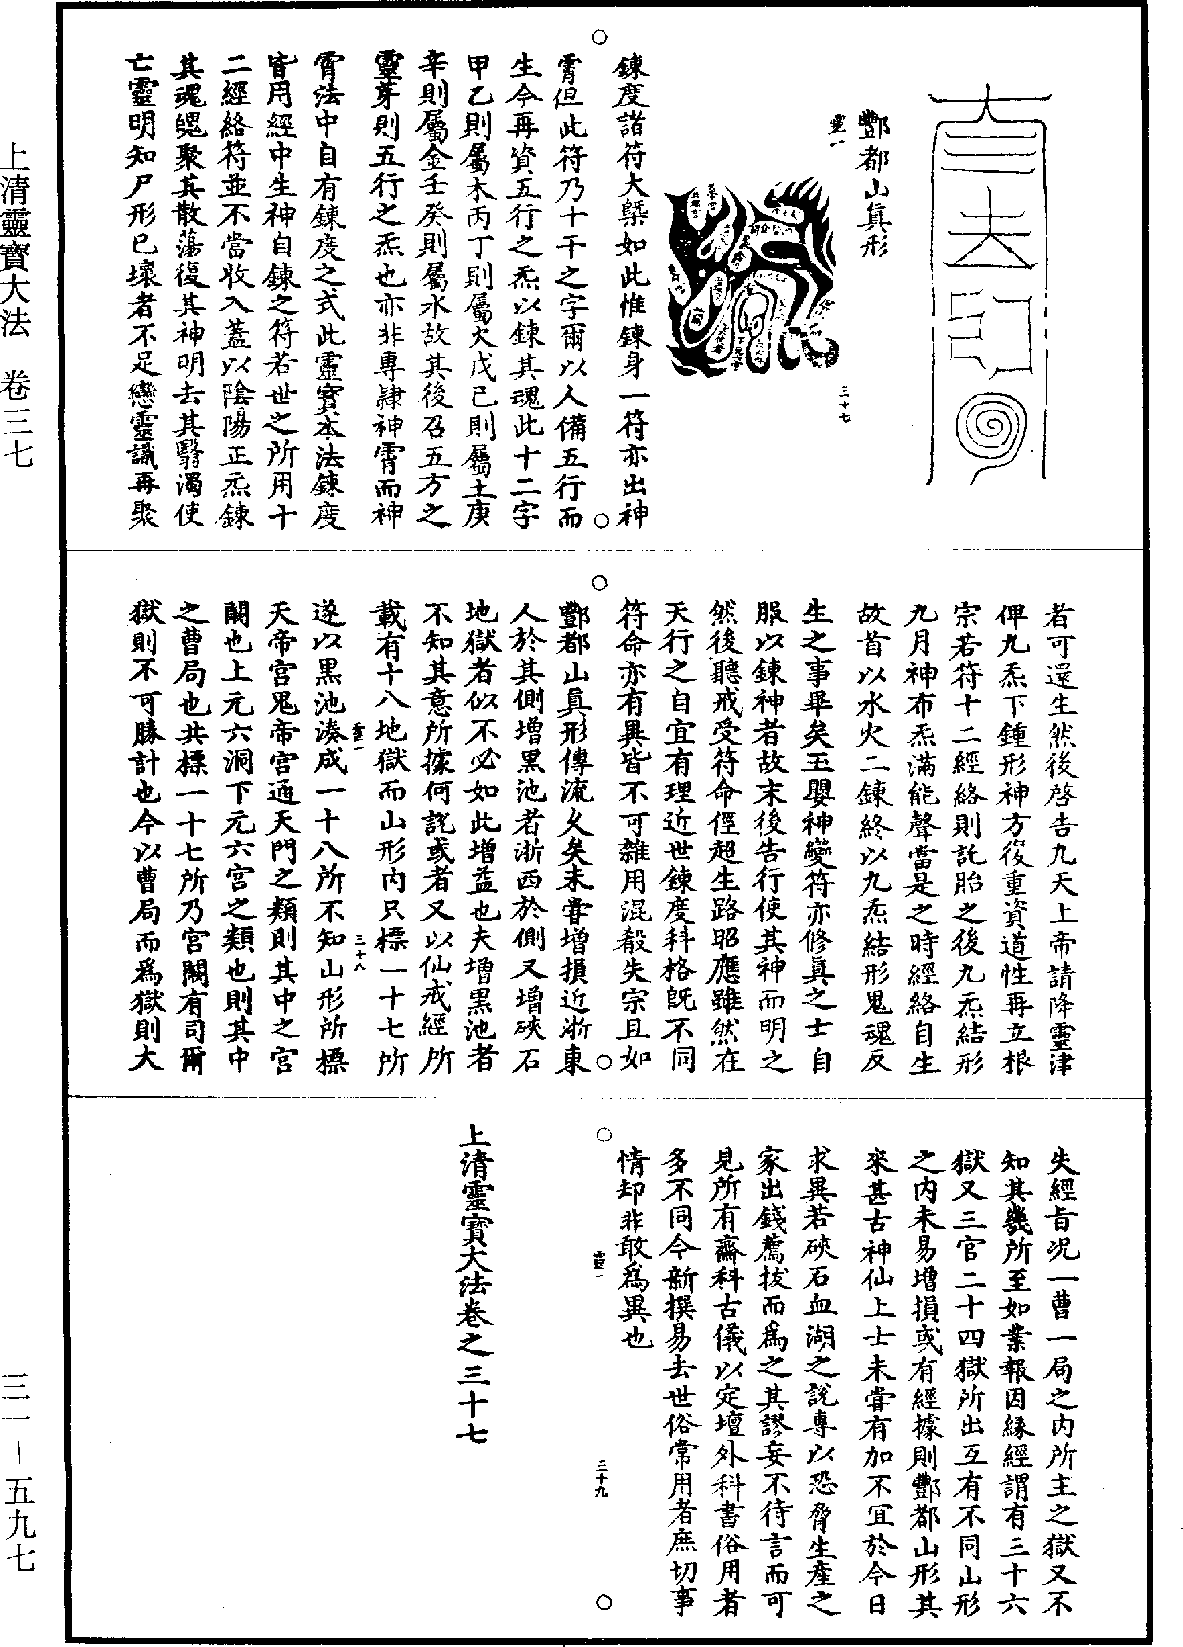 上清靈寶大法　卷三七
三一－五九七
酆都山真形
靈一
三十七
鍊度諸符大槩如此惟鍊身一符亦出神
霄但此符乃十干之字爾以人備五行而
生今再資五行之炁以鍊其魂此十二字
甲乙則屬木丙丁則屬火戊己則屬土庚
辛則屬金壬癸則屬水故其後召五方之
靈芽則五行之炁也亦非專隸神霄而神
霄法中自有鍊度之式此靈寶本法鍊度
皆用經中生神自鍊之符若世之所用十
二經絡符並不當收入蓋以陰陽正炁鍊
其魂魄聚其散蕩復其神明去其翳濁使
亡靈明知尸形已壞者不足戀靈識再聚
者可還生然後啓告九天上帝請降靈津
俾九炁下鍾形神方復重資道性再立根
宗若符十二經絡則託胎之後九炁結形
九月神布炁滿能聲當是之時經絡自生
故首以水火二鍊終以九炁結形鬼魂反
生之事畢矣玉嬰神變符亦修真之士自
服以鍊神者故末後告行使其神而明之
然後聽戒受符命徑超生路昭應雖然在
天行之自宜有理近世鍊度科格既不同
符命亦有異皆不可雜用混殽失宗且如
酆都山真形傳流久矣未嘗增損近浙東
人於其側增黑池者浙西於側又增硤石
地獄者似不必如此增益也夫增黑池者
不知其意所據何說或者又以仙戒經所
載有十八地獄而山形內只標一十七所
靈一
三十八
遂以黑池湊成一十八所不知山形所標
天帝宮鬼帝宮通天門之類則其中之宮
闕也上元六洞下元六宮之類也則其中
之曹局也共標一十七所乃宮闕有司爾
獄則不可勝計也今以曹局而為獄則大
失經旨况一曹一局之內所主之獄又不
知其幾所至如業報因緣經謂有三十六
獄又三官二十四獄所出互有不同山形
之內未易增損或有經據則酆都山形其
來甚古神仙上士未嘗有加不宜於今日
求異若硤石血湖之說專以恐脅生產之
家出錢薦拔而為之其謬妄不待言而可
見所有齋科古儀以定壇外科書俗用者
多不同今新撰易去世俗常用者庶切事
情却非敢為異也
靈一
三十九
上清靈寶大法卷之三十七